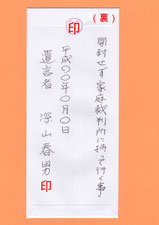 (裏)
印
開封せず家庭裁判所に持って行く事
平成〇〇年〇月〇日
遺言者 深山春男 印